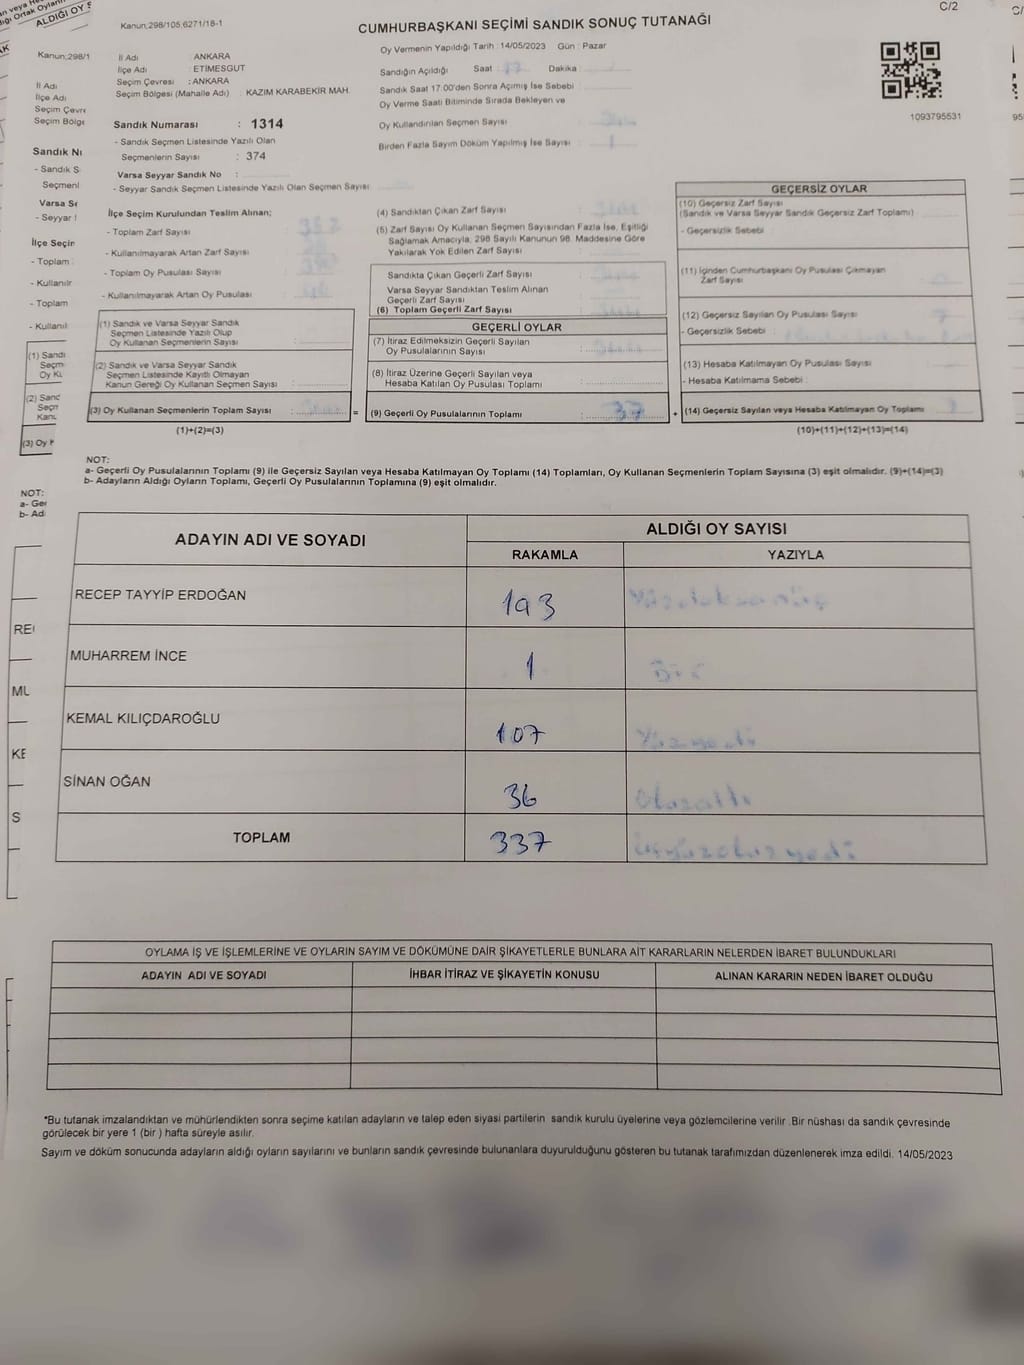 C/2
Kanun;298/105;6271/18-1
CUMHURBAŞKANI SEÇİMİ SANDIK SONUÇ TUTANAĞI
ALDIĞI OY S
Kanun;298/1
İl Adı : ANKARA
İlçe Adı : ETİMESGUT
Seçim Çevresi : ANKARA
Seçim Bölgesi (Mahalle Adı) : KAZIM KARABEKİR MAH.
Sandık Numarası : 1314
- Sandık Seçmen Listesinde Yazılı Olan
Seçmenlerin Sayısı : 374
Varsa Seyyar Sandık No :
- Seyyar Sandık Seçmen Listesinde Yazılı Olan Seçmen Sayısı
Oy Vermenin Yapıldığı Tarih : 14/05/2023 Gün : Pazar
Sandığın Açıldığı Saat : 17 Dakika :
Sandık Saat 17:00'den Sonra Açımış İse Sebebi :
Oy Verme Saati Bitiminde Sırada Bekleyen ve
Oy Kullandırılan Seçmen Sayısı :
Birden Fazla Sayım Döküm Yapılmış İse Sayısı : 1
1093795531
İlçe Seçim Kurulundan Teslim Alınan;
- Toplam Zarf Sayısı :
- Kullanılmayarak Artan Zarf Sayısı :
- Toplam Oy Pusulası Sayısı :
- Kullanılmayarak Artan Oy Pusulası :
(1) Sandık ve Varsa Seyyar Sandık
Seçmen Listesinde Yazılı Olup
Oy Kullanan Seçmenlerin Sayısı :
(2) Sandık ve Varsa Seyyar Sandık
Seçmen Listesinde Kayıtlı Olmayan
Kanun Gereği Oy Kullanan Seçmen Sayısı :
(3) Oy Kullanan Seçmenlerin Toplam Sayısı :
=
(1)+(2)=(3)
(4) Sandıktan Çıkan Zarf Sayısı :
(5) Zarf Sayısı Oy Kullanan Seçmen Sayısından Fazla İse, Eşitliği
Sağlamak Amacıyla, 298 Sayılı Kanunun 98. Maddesine Göre
Yakılarak Yok Edilen Zarf Sayısı :
Sandıkta Çıkan Geçerli Zarf Sayısı :
Varsa Seyyar Sandıktan Teslim Alınan
Geçerli Zarf Sayısı :
(6) Toplam Geçerli Zarf Sayısı :
GEÇERLİ OYLAR
(7) İtiraz Edilmeksizin Geçerli Sayılan
Oy Pusulalarının Sayısı :
(8) İtiraz Üzerine Geçerli Sayılan veya
Hesaba Katılan Oy Pusulası Toplamı :
(9) Geçerli Oy Pusulalarının Toplamı :
+
GEÇERSİZ OYLAR
(10) Geçersiz Zarf Sayısı
(Sandık ve Varsa Seyyar Sandık Geçersiz Zarf Toplamı) :
- Geçersizlik Sebebi :
(11) İçinden Cumhurbaşkanı Oy Pusulası Çıkmayan
Zarf Sayısı :
(12) Geçersiz Sayılan Oy Pusulası Sayısı : 7
- Geçersizlik Sebebi :
(13) Hesaba Katılmayan Oy Pusulası Sayısı :
- Hesaba Katılmama Sebebi :
(14) Geçersiz Sayılan veya Hesaba Katılmayan Oy Toplamı :
(10)+(11)+(12)+(13)=(14)
NOT:
a- Geçerli Oy Pusulalarının Toplamı (9) ile Geçersiz Sayılan veya Hesaba Katılmayan Oy Toplamı (14) Toplamları, Oy Kullanan Seçmenlerin Toplam Sayısına (3) eşit olmalıdır. (9)+(14)=(3)
b- Adayların Aldığı Oyların Toplamı, Geçerli Oy Pusulalarının Toplamına (9) eşit olmalıdır.
ADAYIN ADI VE SOYADI
ALDIĞI OY SAYISI
RAKAMLA YAZIYLA
RECEP TAYYİP ERDOĞAN 193
MUHARREM İNCE 1 Bir
KEMAL KILIÇDAROĞLU 107 Yüzyedi
SİNAN OĞAN 36 Otuzaltı
TOPLAM 337 üçyüzotuzyedi
OYLAMA İŞ VE İŞLEMLERİNE VE OYLARIN SAYIM VE DÖKÜMÜNE DAİR ŞİKAYETLERLE BUNLARA AİT KARARLARIN NELERDEN İBARET BULUNDUKLARI
ADAYIN ADI VE SOYADI İHBAR İTİRAZ VE ŞİKAYETİN KONUSU ALINAN KARARIN NEDEN İBARET OLDUĞU
*Bu tutanak imzalandıktan ve mühürlendikten sonra seçime katılan adayların ve talep eden siyasi partilerin sandık kurulu üyelerine veya gözlemcilerine verilir .Bir nüshası da sandık çevresinde
görülecek bir yere 1 (bir ) hafta süreyle asılır.
Sayım ve döküm sonucunda adayların aldığı oyların sayılarını ve bunların sandık çevresinde bulunanlara duyurulduğunu gösteren bu tutanak tarafımızdan düzenlenerek imza edildi. 14/05/2023